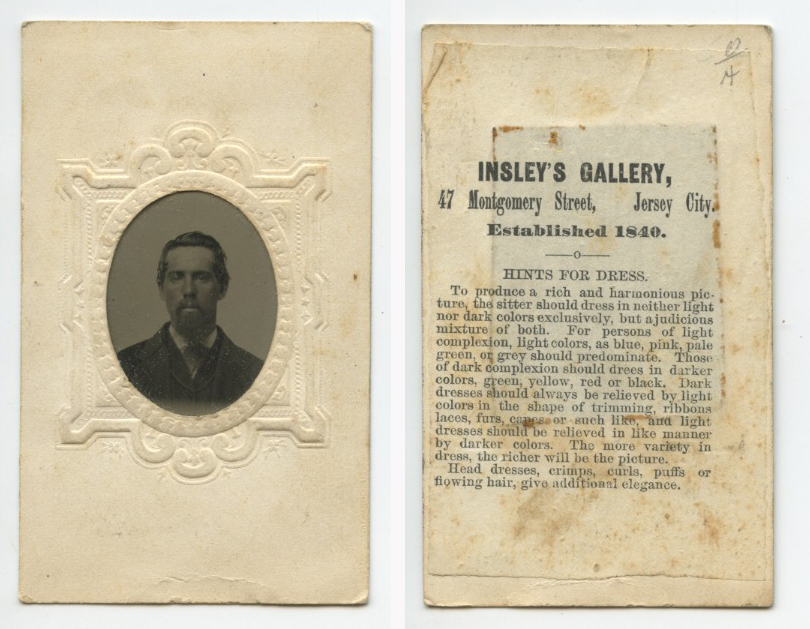 INSLEY'S GALLERY,
47 Montgomery Street, Jersey City.
Established 1840.
HINTS FOR DRESS.
To produce a rich and harmonious pic-
ture, the sitter should dress in neither light
nor dark colors exclusively, but ajudicious
mixture of both. For persons of light
complexion, light colors, as blue, pink, pale
green, or grey should predominate. Those
of dark complexion should drees in darker
colors, green, yellow, red or black. Dark
dresses should always be relieved by light
colors in the shape of trimming, ribbons
laces, furs, capes or such like, and light
dresses should be relieved in like manner
by darker colors. The more variety in
dress, the richer will be the picture.
Head dresses, crimps, curls, puffs or
flowing hair, give additional elegance.